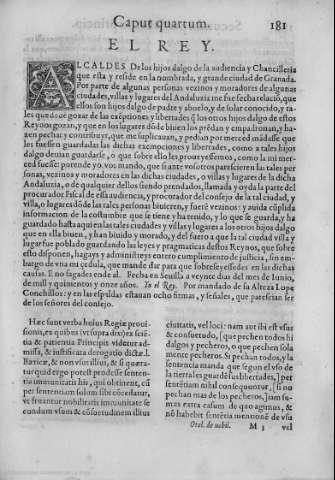 Caput quartum. 181
EL REY.
ALCALDES De los hijos dalgo de la audiencia y Chancilleria
que esta y reside en la nombrada, y grande ciudad de Granada.
Por parte de algunas personas vezinos y moradores de algunas
ciudades, villas y lugares del Andaluzia me fue fecha relació, que
ellos son hijos dalgo de padre y abuelo, y de solar conocido, y ta-
les que de gozar de las exceptiones y libertades q̃ los otros hijos dalgo destos
Reynos gozan, y que en los lugares dóde biuen los prédan y empadronan, y ha-
zen pechar y contribuyr, que me suplicauan, y pedian por merced mádasse que
les fuessen guardadas las dichas exemptiones y libertades, como a tales hijos
dalgo deuian guardarse, o que sobre ello les proueyessemos, como la mi mer-
ced fuesse: porende yo vos mando, que si ante vosotros parescieren las tales per-
sonas, vezinos y moradores en las dichas ciudades, o villas y lugares de la dicha
Andaluzia, o de qualquier dellos siendo prendados, llamada y oyda la parte del
procurador Fiscal de essa audiencia, y procurador del consejo de la tal ciudad, y
villa, o lugar dóde las tales personas biuieren, y fueré vezinos: y auida cúplida
informacion de la costumbre que se tiene y ha tenido, y lo que se guarda, y ha
guardado hasta aqui en las tales ciudades y villas y lugares a los otros hijos dalgo
que en ella biuen, y ha biuido y morado, y del fuero a que la tal ciudad villa y
lugar fue poblado guardando las leyes y pragmaticas destos Reynos, que sobre
esto disponen, hagays y administreys entero cumplimiento de justicia, sin em-
bargo de vna mi cedula, que mande dar para que sobreseyessedes en las dichas
causas. E no fagades ende al. Fecha en Seuilla a veynte dias del mes de Iunio,
de mil y quinientos y onze años. Yo el Rey. Por mandado de su Alteza Lope
Conchillos: y en las espaldas estauan ocho firmas, y señales, que parescian ser
de los señores del consejo.
Hæc sunt verba huius Regiæ proui-
sionis, ex quibus (vt supra dixi) ex scié
tia & patientia Principis videtur ad-
missa, & iustificata derogatio dictæ. l.
Bæticæ, & non vsus illius, & si quæra-
tur quid ergo potest prodesse senten-
tia immunitatis his, qui obtinent, cú
per sententiam solum sibi cócedatur,
vt seruetur nobilitatis immunitate se
cundum vsum & cósuetudinem illius
ciuitatis, vel loci: nam aut ibi est vsus
& consuetudo, [que pechen todos hi
dalgos y pecheros, o que pechen sola
mente pecheros. Si pechan todos, y la
sentencia manda que segun el vso de
la tierra les guardé sus libertades,] per
sentétiam nihil consequuntur, [si no
pechan mas de los pecheros,] iam su-
mus extra casum de quo agimus, &
nõ habebit sentétia mentionẽ de vsu
Otal. de nobil. M 3 vel